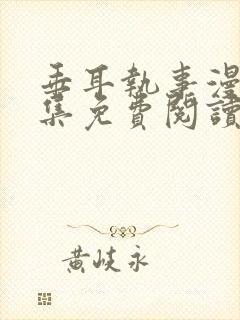 垂耳執事漫
集免費閱讀
黃岐永